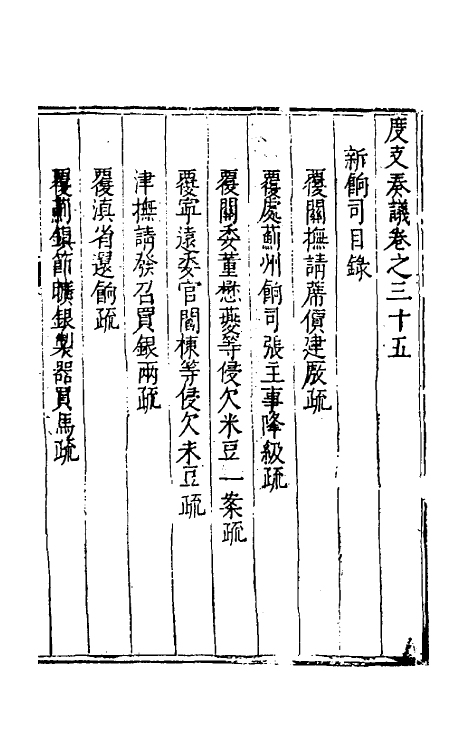 度支奏議卷之三十五
新餉司目錄
覆關撫請蓆價建厫疏
覆處薊州餉司張主事降級疏
覆關委董懋夔等侵欠米豆一案疏
覆寧遠委官閻棟等侵欠米豆疏
津撫請發召買銀兩疏
覆滇省還餉疏
覆薊鎮節曠銀製器買馬疏